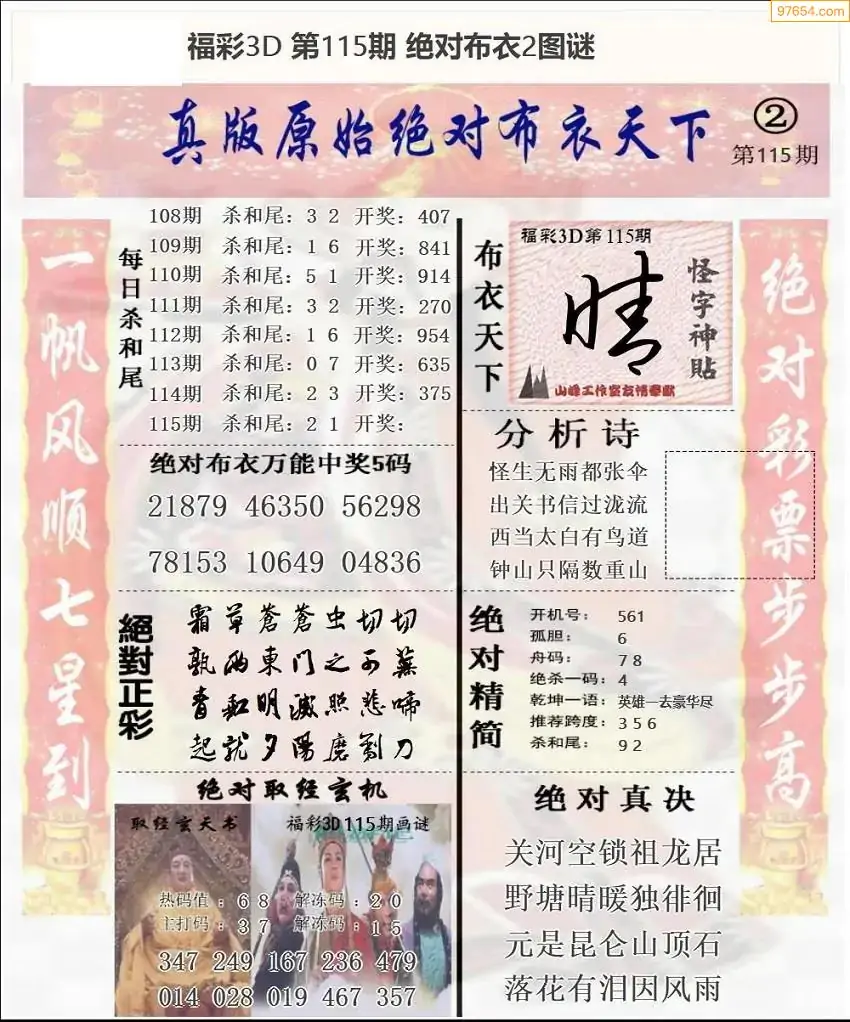 97654.com
福彩3D 第115期 绝对布衣2图谜
真版原始绝对布衣天下
②
第115期
一帆风顺七星到
每日杀和尾
108期 杀和尾：3 2 开奖：407
109期 杀和尾：1 6 开奖：841
110期 杀和尾：5 1 开奖：914
111期 杀和尾：3 2 开奖：270
112期 杀和尾：1 6 开奖：954
113期 杀和尾：0 7 开奖：635
114期 杀和尾：2 3 开奖：375
115期 杀和尾：2 1 开奖：
绝对布衣万能中奖5码
21879 46350 56298
78153 10649 04836
絕對正彩
霜草蒼蒼虫切切
孰两東門之不蕪
青和明滅照悲啼
起就夕陽磨剪刀
绝对取经玄机
取经玄天书
福彩3D115期画谜
热码值：6 8 解冻码：2 0
主打码：3 7 解冻码：1 5
347 249 167 236 479
014 028 019 467 357
布衣天下
福彩3D第115期
晴
怪字神貼
山峰工作室友情奉献
分析诗
怪生无雨都张伞
出关书信过泷流
西当太白有鸟道
钟山只隔数重山
绝对精简
开机号： 561
孤胆： 6
舟码： 7 8
绝杀一码：4
乾坤一语：英雄一去豪华尽
推荐跨度：3 5 6
杀和尾： 9 2
绝对真决
关河空锁祖龙居
野塘晴暖独徘徊
元是昆仑山顶石
落花有泪因风雨
绝对彩票步步高